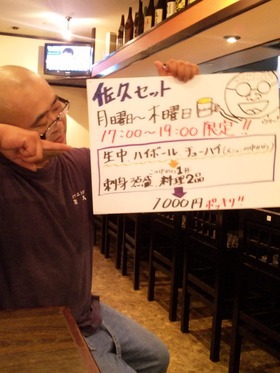 佐久セット
月曜日〜木曜日
17:00〜19:00 限定!!
生中 ハイボール チューハイ
刺身3点盛 料理2品
1000円ポッキリ!!